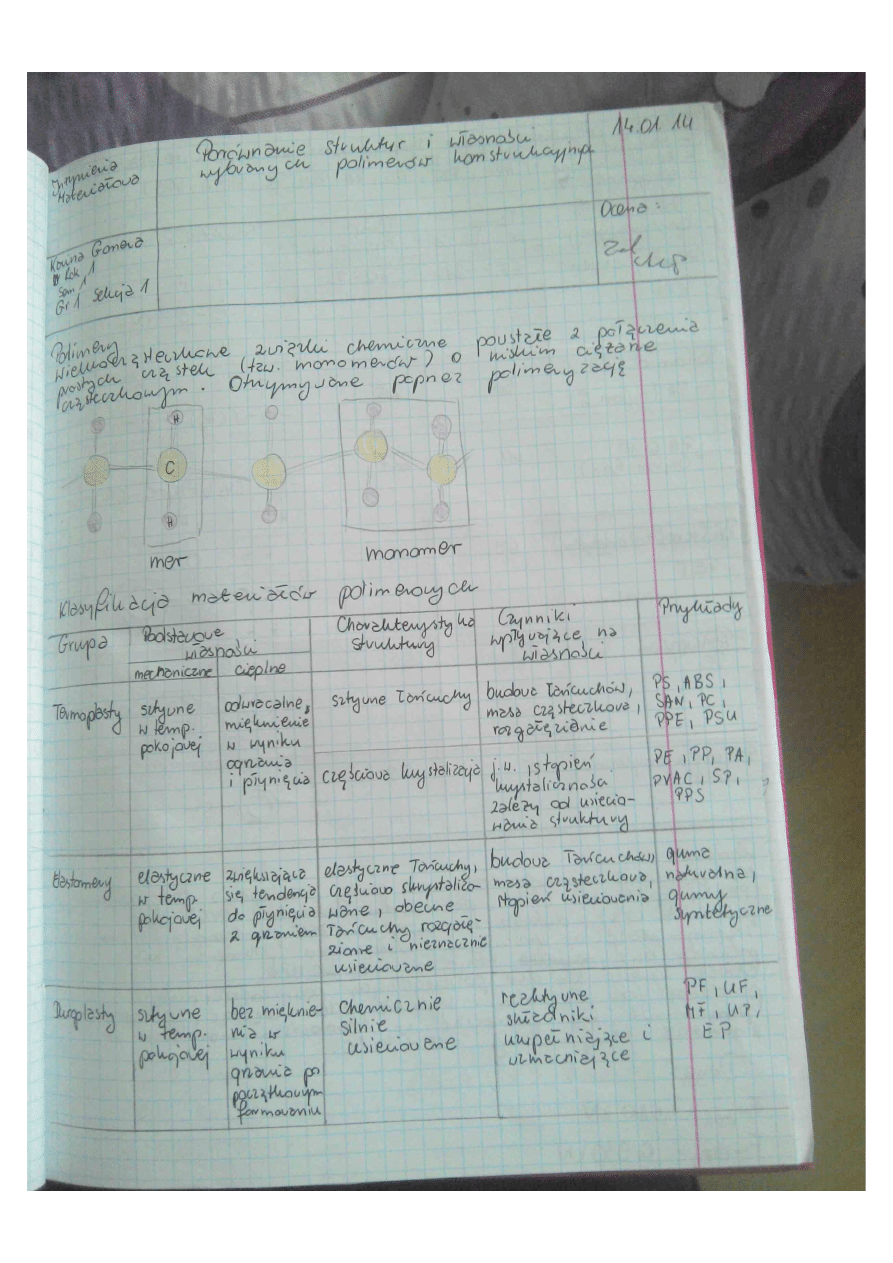 Inżynieria
Materiałowa
Porównanie struktur i własności
wybranych polimerów konstrukcyjnych
14.01.14
Gonera
Sem 1
Gr 1 Sekcja 1
Ocena:
Zal
Polimery
wielkocząsteczkowe związki chemiczne powstałe z połączenia
prostych cząstek (tzw. monomerów) o niskim ciężarze
cząsteczkowym. Otrzymywane poprzez polimeryzację
H
C
H
mer
monomer
Klasyfikacja materiałów polimerowych
Grupa
Podstawowe
własności
mechaniczne
cieplne
Charakterystyka
struktury
Czynniki
wpływające na
własności
Przykłady
Termoplasty
sztywne
w temp.
pokojowej
odwracalne,
mięknienie
w wyniku
ogrzania
i płynięcia
sztywne łańcuchy
budowa łańcuchów,
masa cząsteczkowa,
rozgałęzienie
PS, ABS,
SAN, PC,
PPE, PSU
częściowa krystalizacja
j.w., stopień
krystaliczności
zależy od usiecio-
wania struktury
PE, PP, PA,
PVAC, SP,
PPS
Elastomery
elastyczne
w temp.
pokojowej
zwiększająca
się tendencja
do płynięcia
z grzaniem
elastyczne łańcuchy,
częściowo skrystalizo-
wane, obecne
łańcuchy rozgałę-
zione i nieznacznie
usieciowane
budowa łańcuchów,
masa cząsteczkowa,
stopień usieciowania
guma
naturalna,
gumy
syntetyczne
Duroplasty
sztywne
w temp.
pokojowej
bez mięknie-
nia w
wyniku
grzania po
początkowym
formowaniu
chemicznie
silnie
usieciowane
reaktywne
składniki
uzupełniające i
wzmacniające
PF, UF,
MF, UP,
EP